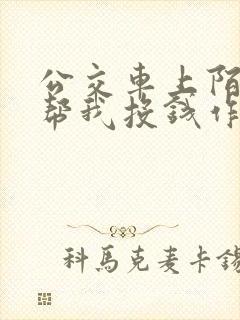 公交車上陌
帮我投錢作
科馬克麦卡錫